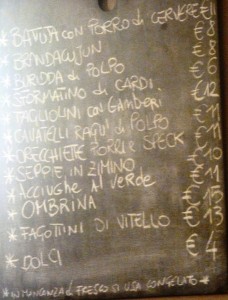 * BATTUTA CON PORRO di CERVERE €11
* BRANDACUJUN € 8
* BURIDDA di POLPO € 8
* SFORMATINO di CARDI. € 6
* TAGLIOLINI con GAMBERI € 12
* CAVATELLI RAGU' di POLPO € 11
* ORECCHIETE PORRI e SPECK € 11
* SEPPIE IN ZIMINO € 10
* ACCIUGHE AL VERDE € 11
* OMBRINA € 15
* FAGOTTINI DI VITELLO € 13
* DOLCI € 4
* IN MANCANZA di FRESCO SI USA CONGELATO *